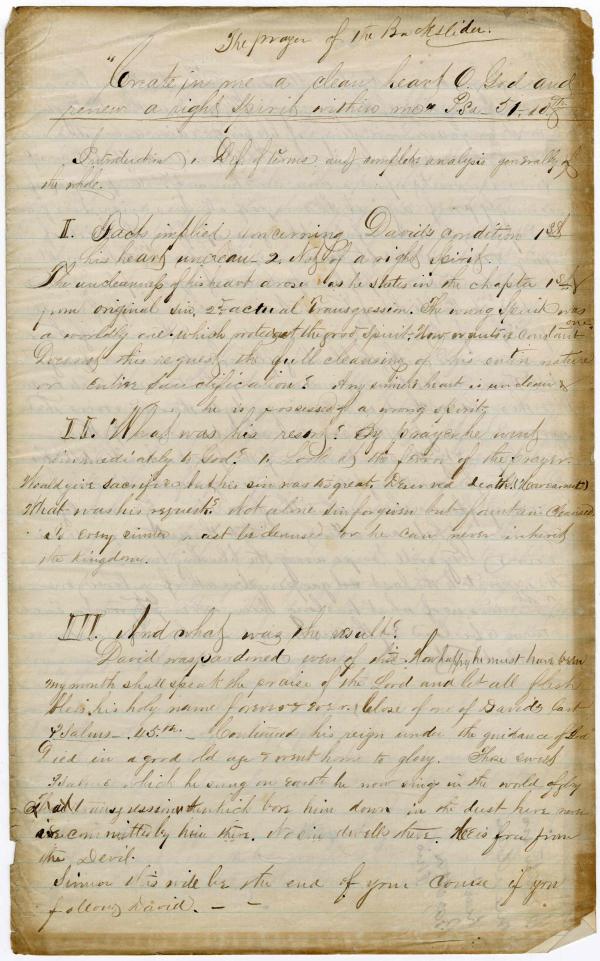 The prayer of the Backslider.
"Create in me a clean heart O. God and
renew a right Spirit within me" Psa. 51. 10th
Introduction. Def. of terms and complete analysis generally of
the whole.
I. Facts implied concerning David's condition 1st
his heart unclean 2. Not of a right Spirit.
The uncleanness of his heart arose as he states in the chapter 1st
from original sin, 2nd actual transgression. The wrong Spirit was
a worldly one which the good Spirit. How constant
Does not this request the full cleansing of his entire nature
or entire sanctification? Any sinner's heart is unclean &
he is possessed of a wrong spirit
II. What was his resort? By prayer he went
immediately to God? 1. Look at the form of the prayer.
Would give sacrifice but his sin was to great. Deserved death.
What was his request? Not alone sin forgiven but fountain cleansed
so every sinner must be cleansed or he can never inherit
the kingdom.
III. And what was the result?
David was pardoned even of this. How happy he must have been
my mouth shall speak the praise of the Lord and let all flesh
bless his holy name forever & ever. Close of one of David's last
Psalms - 45.th - Continued his reign under the guidance of God
Died in a good old age & went home to glory. Those sweet
Psalms which he sung on earth he now sings in the world of glory
transgression which bore him down in the dust here now
are committed by him there. No sin dwells there. He is free from
the Devil.
Sinner this will be the end of your course if you
follow David. - -